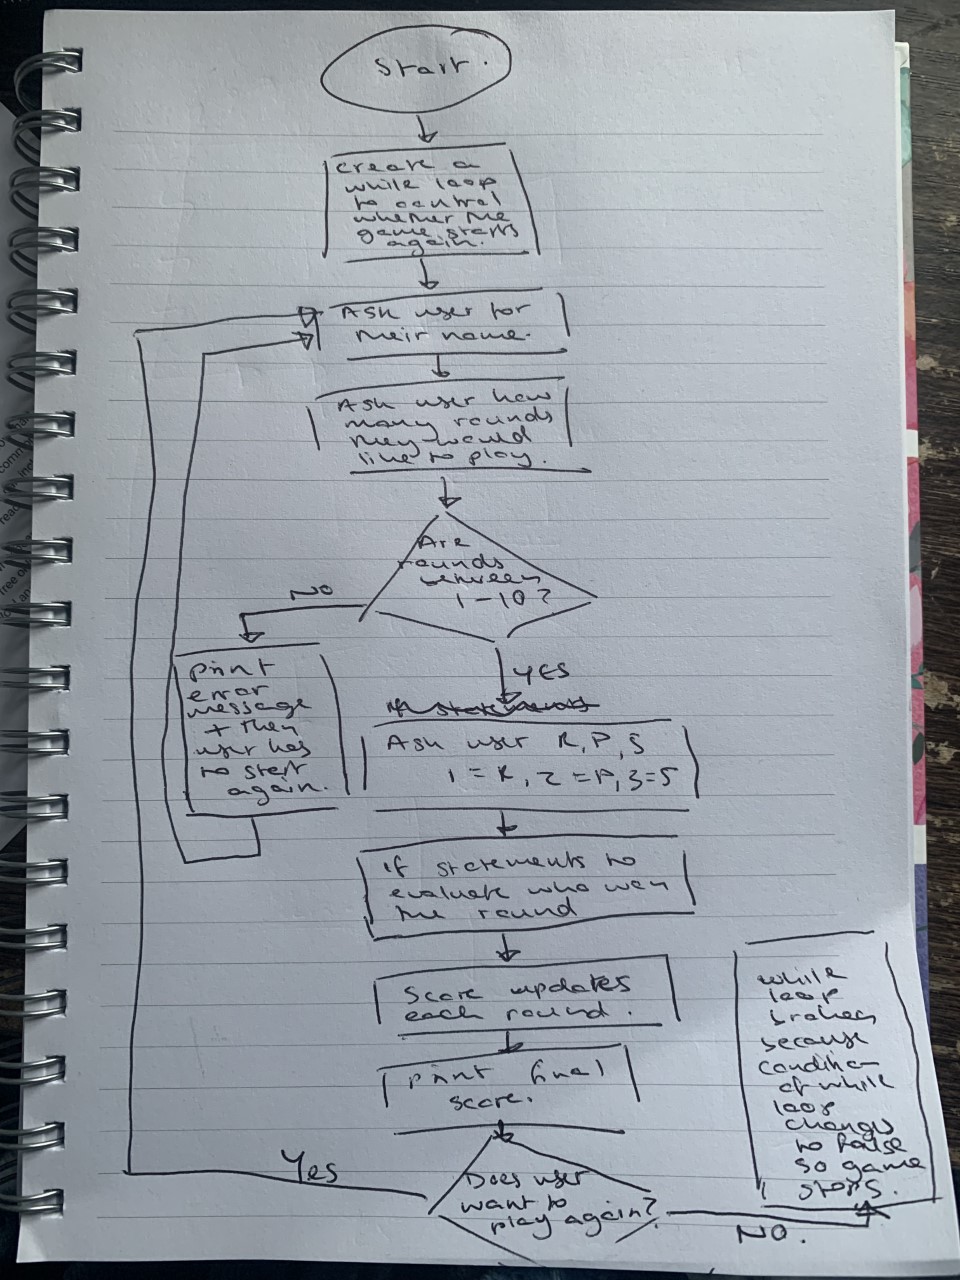 Start.
create a
while loop
to control
whether the
game starts
again.
Ask user for
their name.
Ask user how
many rounds
they would
like to play.
Are
rounds
between
1-10?
NO
YES
print
error
message
+ then
user has
to start
again.
if statements
Ask user R, P, S
1 = R, 2 = P, 3 = S
if statements to
evaluate who won
the round
Score updates
each round.
print final
score.
Does user
want to
play again?
Yes
NO.
while
loop
broken
because
condition
of while
loop
changes
to false
so game
stops.